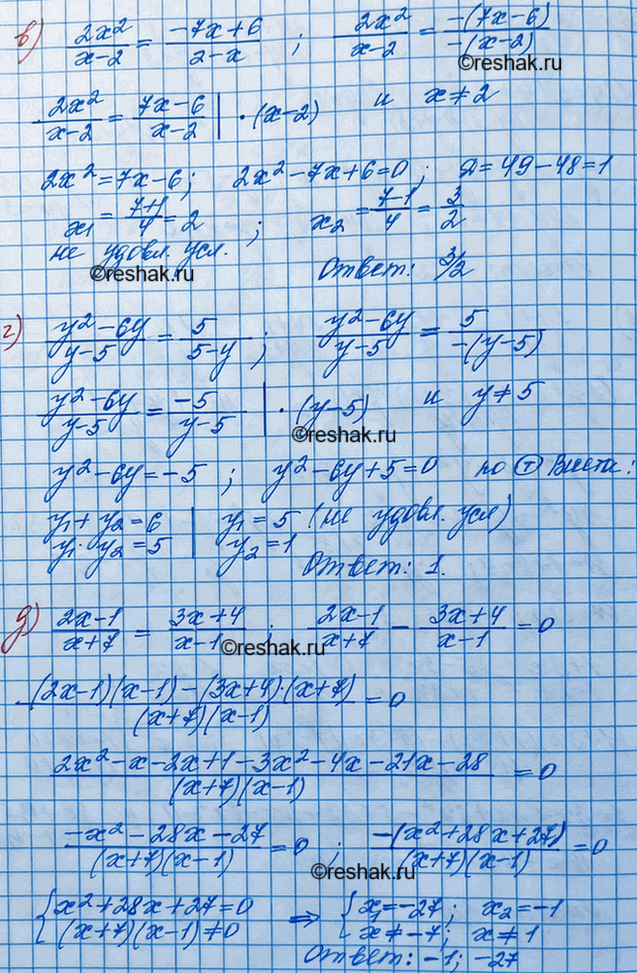 в) 2x²/(x-2) = (-7x+6)/(2-x) ; 2x²/(x-2) = -(7x-6)/-(x-2)
©reshak.ru
2x²/(x-2) = (7x-6)/(x-2) | · (x-2) и x≠2
2x² = 7x-6; 2x²-7x+6=0; D=49-48=1
x₁ = (7+1)/4 = 2 ; x₂ = (7-1)/4 = 3/2
не удовл. усл.
©reshak.ru
Ответ: 3/2
г) (y²-6y)/(y-5) = 5/(5-y) ; (y²-6y)/(y-5) = 5/-(y-5)
(y²-6y)/(y-5) = -5/(y-5) | · (y-5) и y≠5
©reshak.ru
y²-6y=-5 ; y²-6y+5=0 по Т Виета:
y₁+y₂=6 | y₁=5 (не удовл. усл)
y₁·y₂=5 | y₂=1
Ответ: 1.
д) (2x-1)/(x+7) = (3x+4)/(x-1) ; (2x-1)/(x+7) - (3x+4)/(x-1) = 0
©reshak.ru
((2x-1)(x-1)-(3x+4)·(x+7))/((x+7)(x-1)) = 0
(2x²-x-2x+1-3x²-4x-21x-28)/((x+7)(x-1)) = 0
(-x²-28x-27)/((x+7)(x-1)) = 0 ; -(x²+28x+27)/((x+7)(x-1)) = 0
©reshak.ru
{x²+28x+27=0 ⇒ {x₁=-27; x₂=-1
(x+7)(x-1)≠0 x≠-7; x≠1
Ответ: -1; -27